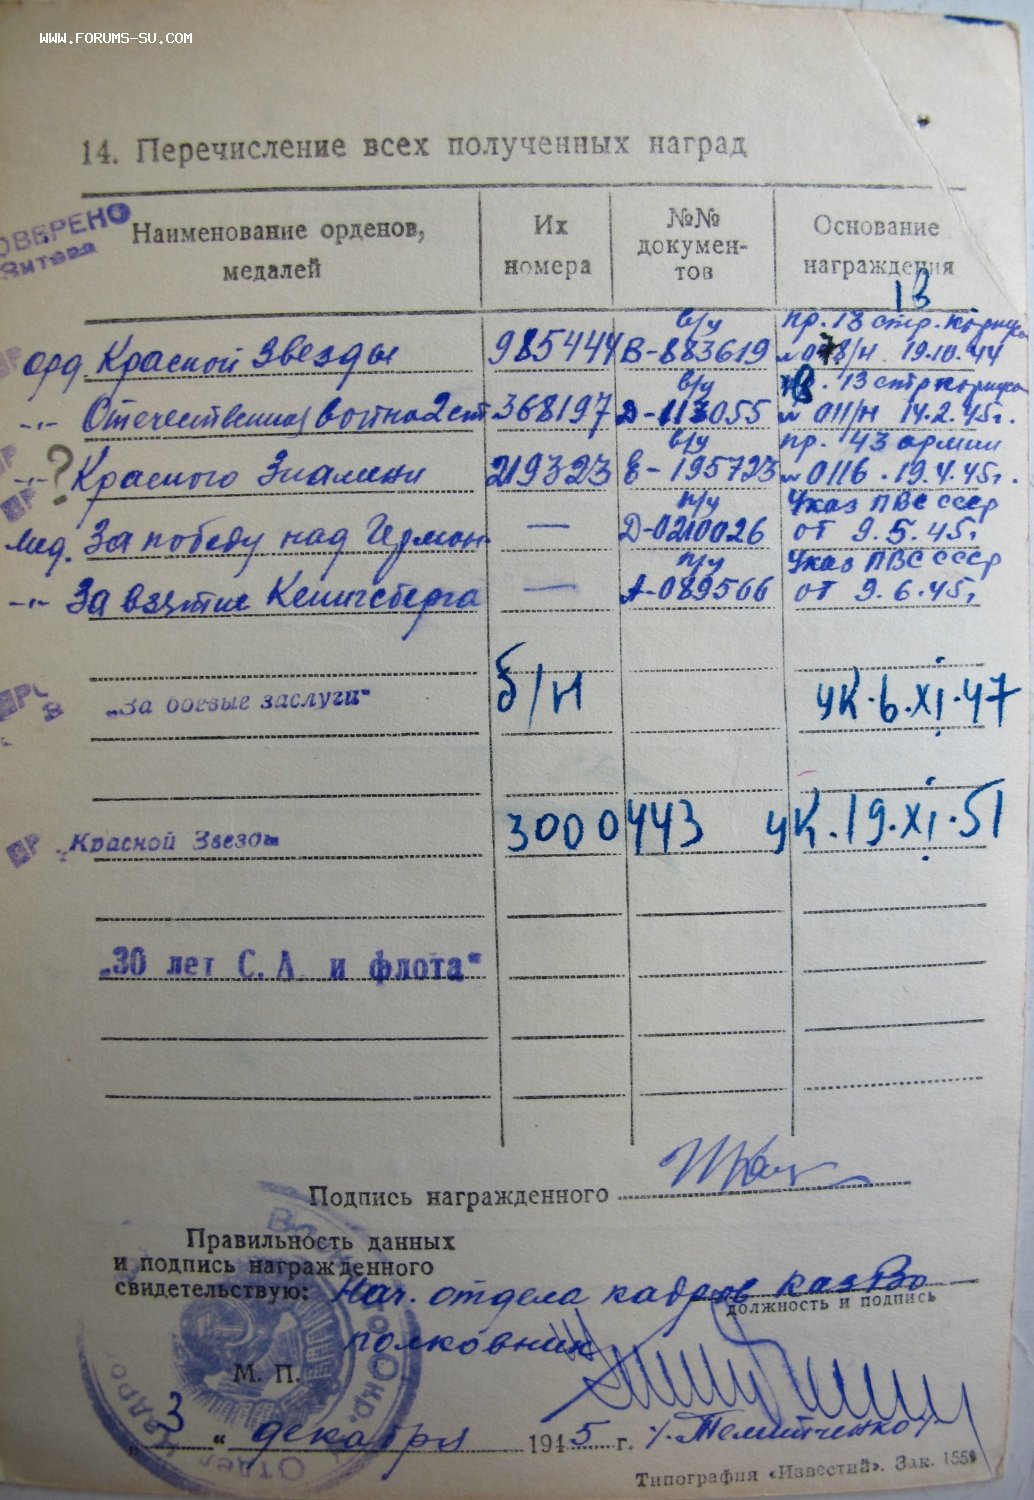 WWW.FORUMS-SU.COM
14. Перечисление всех полученных наград
ОВЕРЕНО
Наименование орденов, медалей
Их номера
№№ докумен-тов
Основание награждения
1 В
орд. Красной Звезды 985444 в/у В-883619 пр. 13 стр. корпуса № 078/н 19.10.44
-"- Отечественная война 2 ст 368197 в/у Д-113055 13 стр корпуса № 011/н 14.2.45г.
-"- ? Красного Знамени 219323 в/у Е-195723 пр. 43 армии № 0116. 19.4.45г.
Мед. За победу над Герман — п/у Д-0210026 Указ ПВС СССР от 9.5.45г
-"- За взятие Кенигсберга — п/у А-089566 Указ ПВС СССР от 9.6.45г
„За боевые заслуги" б/н УК.6.XI.47
Красной Звезды 3000443 УК.19.XI.51
„30 лет С.А. и флота"
Подпись награжденного
Правильность данных
и подпись награжденного
свидетельствую: Нач. отдела кадров КазВо
должность и подпись
полковник
М. П.
„3" декабря 1945 г. /Темитченко/
Типография «Известий». Зак. 1559